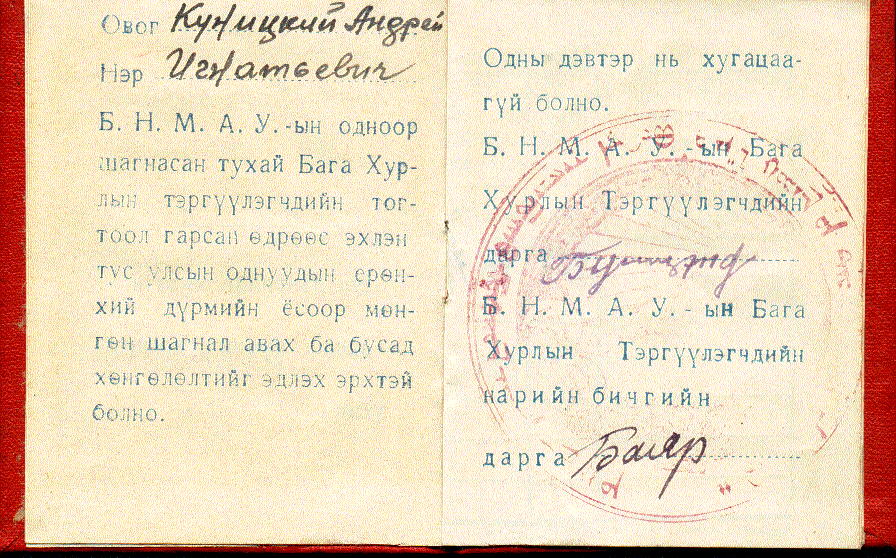 Овог Куницкий Андрей
Нэр Игнатьевич
Б. Н. М. А. У.-ын одноор
шагнасан тухай Бага Хур-
лын тэргүүлэгчдийн тог-
тоол гарсан өдрөөс эхлэн
тус улсын однуудын ерөн-
хий дүрмийн ёсоор мөн-
гөн шагнал авах ба бусад
хөнгөлөлтийг эдлэх эрхтэй
болно.
Одны дэвтэр нь хугацаа-
гүй болно.
Б. Н. М. А. У.-ын Бага
Хурлын Тэргүүлэгчдийн
дарга
Б. Н. М. А. У.-ын Бага
Хурлын Тэргүүлэгчдийн
нарийн бичгийн
дарга Баяр